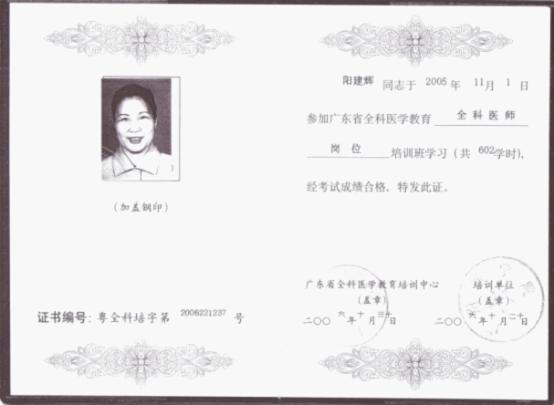 (加盖钢印)
证书编号：粤全科培字第 2006221237 号
阳建辉 同志于 2005 年 11 月 1 日
参加广东省全科医学教育 全科医师
岗位 培训班学习（共 602学时），
经考试成绩合格，特发此证。
广东省全科医学教育培训中心 培训单位
（盖章） （盖章）
二〇〇六年十月三十日 二〇〇六年十月二十日